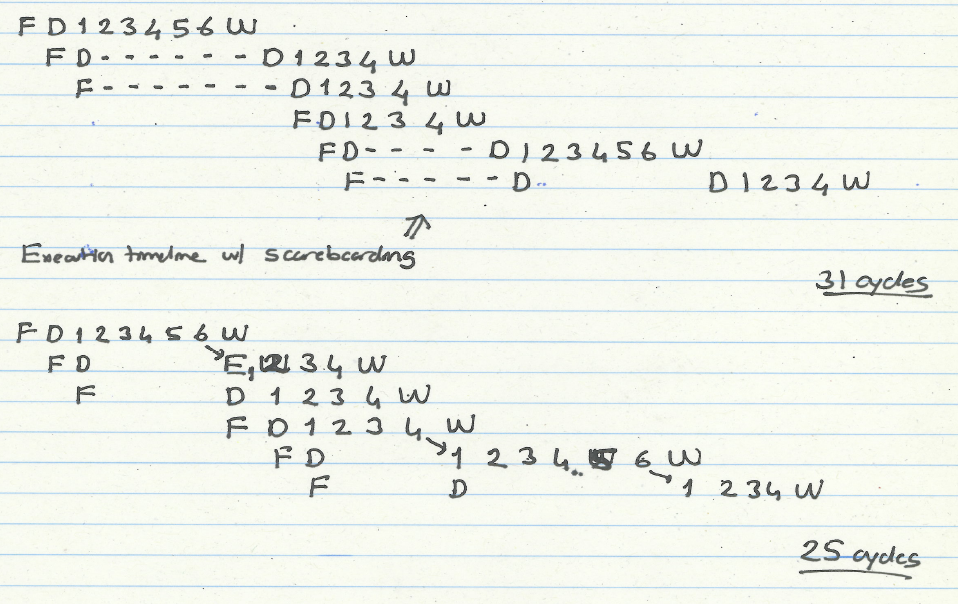 F D 1 2 3 4 5 6 W
F D - - - - - - D 1 2 3 4 W
F - - - - - - - D 1 2 3 4 W
F D 1 2 3 4 W
F D - - - - D 1 2 3 4 5 6 W
F - - - - - D D 1 2 3 4 W
Execution timeline w/ scoreboarding
31 cycles
F D 1 2 3 4 5 6 W
F D E1 2 3 4 W
F D 1 2 3 4 W
F D 1 2 3 4 W
F D 1 2 3 4 5 6 W
F D 1 2 3 4 W
25 cycles